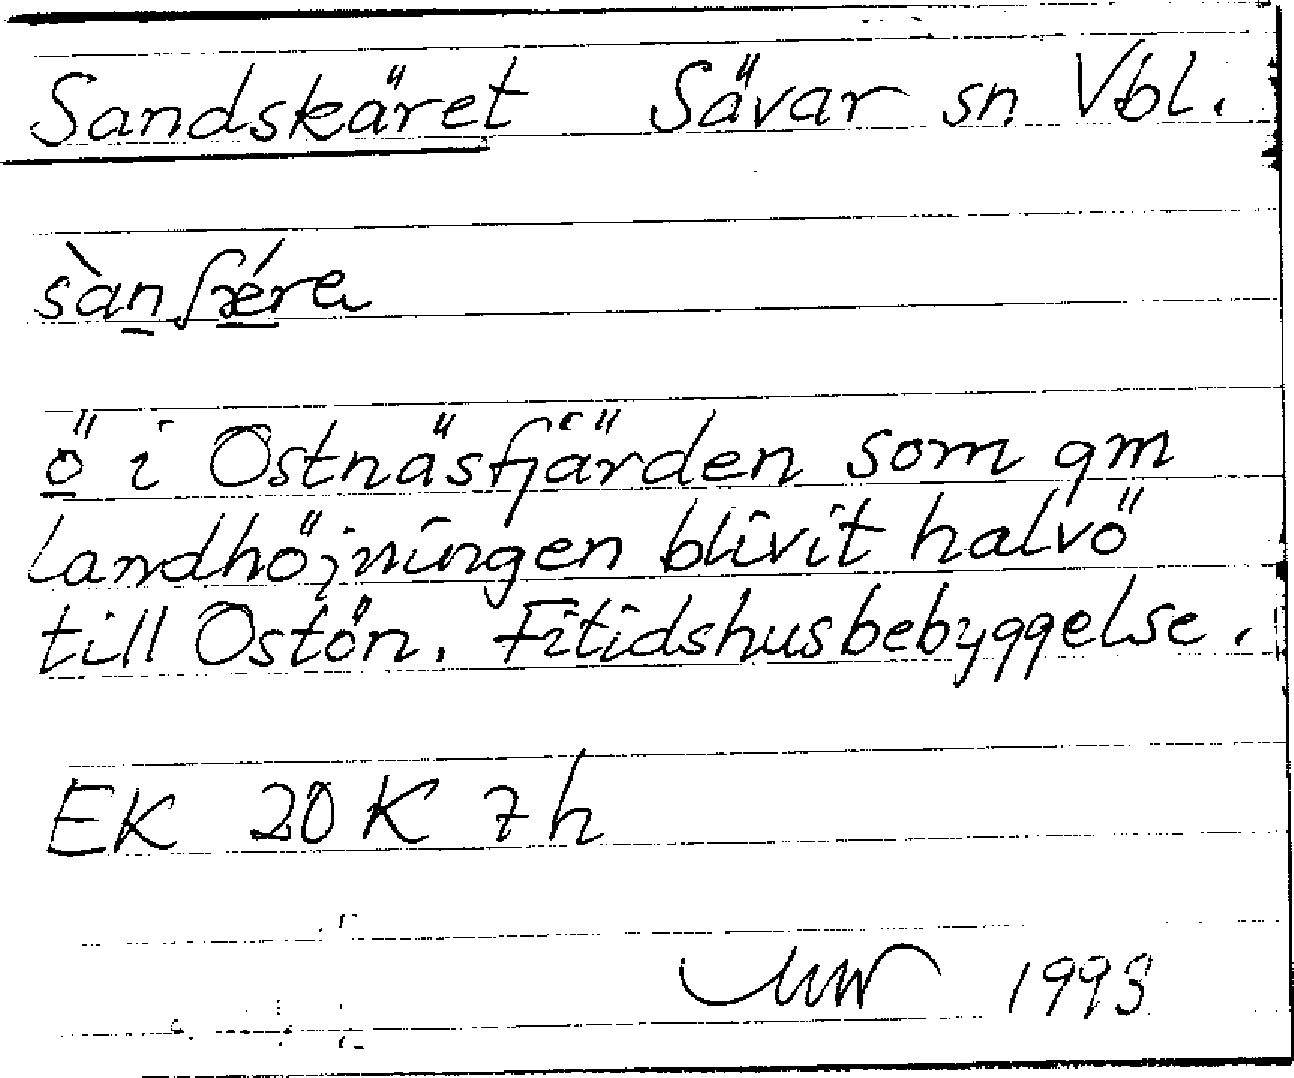 Sandskäret Sävar sn Vbl.
sànʃǽra
ö i Ostnäsfjärden som gm
landhöjningen blivit halvö
till Ostön. Fritidshusbebyggelse.
EK 20 K 7h
1993